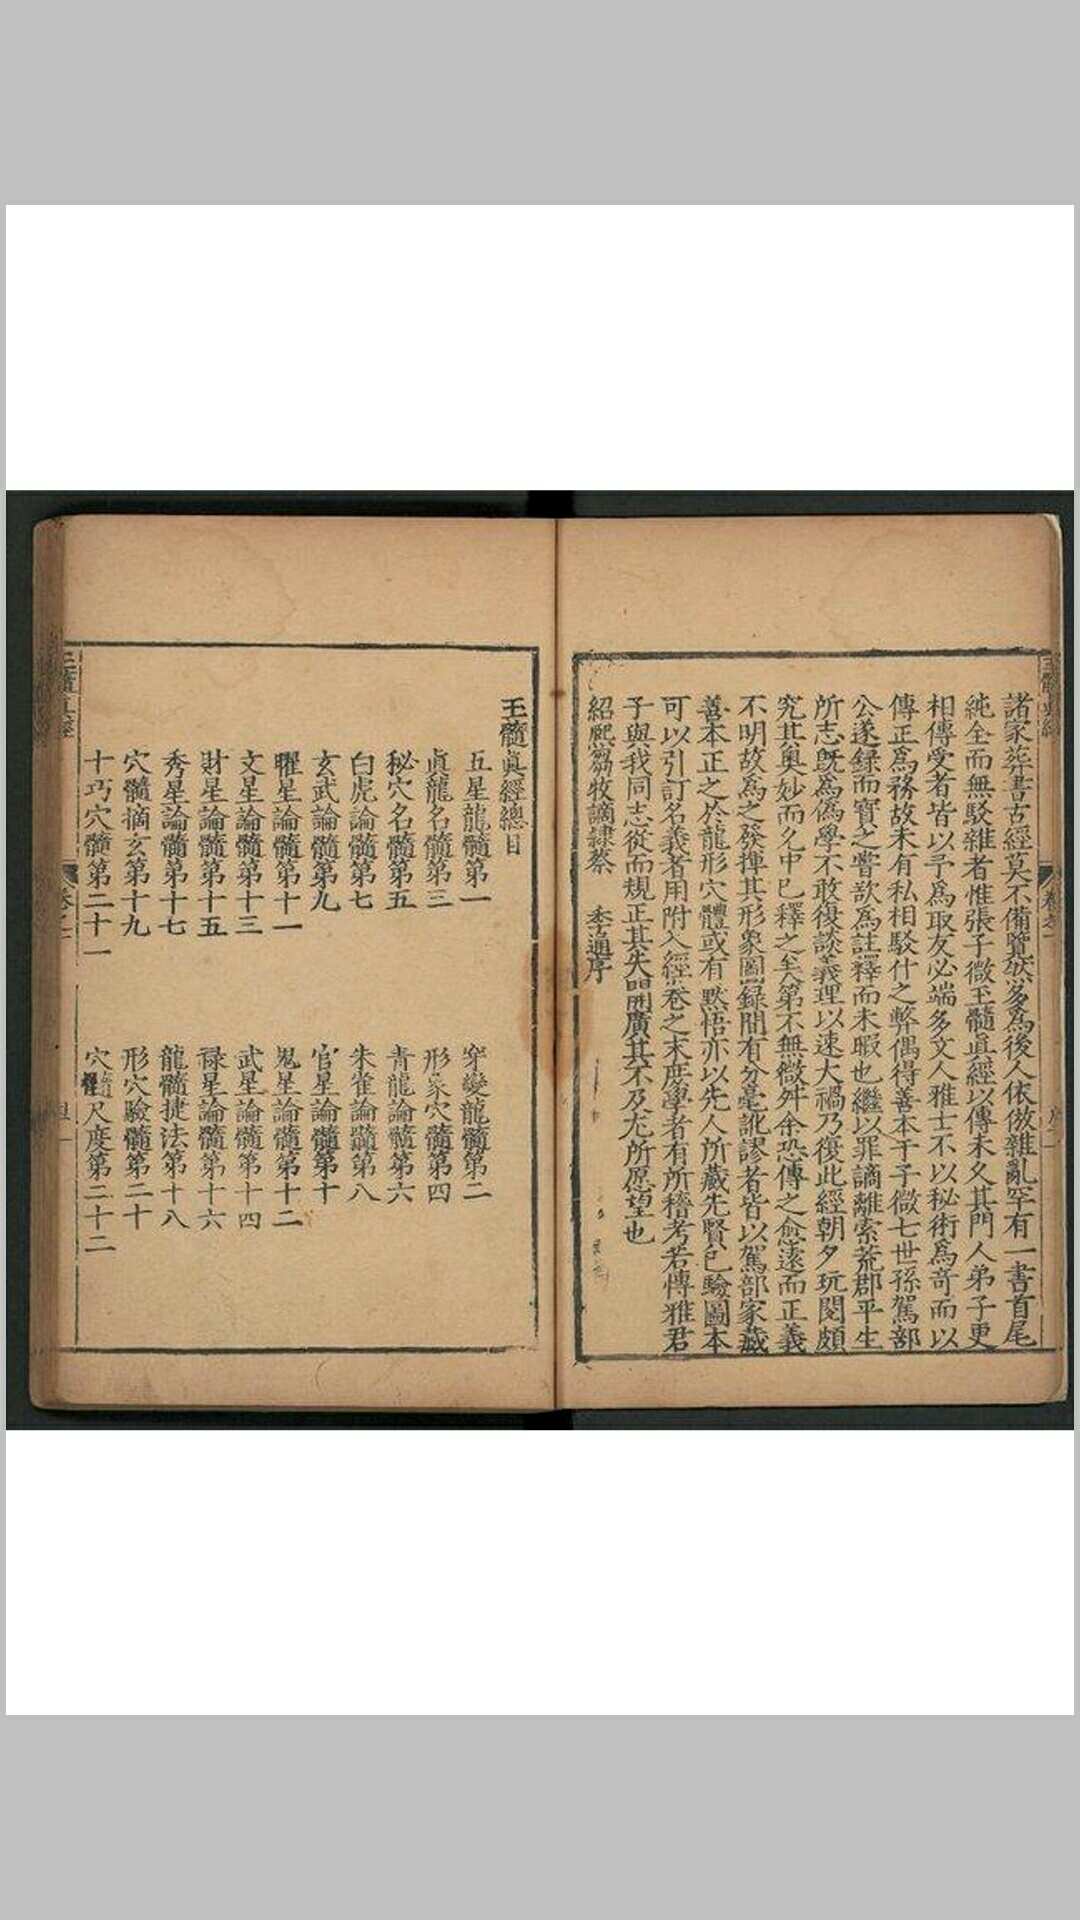 諸家葬書古經莫不備覽然多為後人依倣雜亂罕有一書首尾
純全而無駁雜者惟張子微玉髓眞經以傳未久其門人弟子更
相傳受者皆以予爲取友必端多文人雅士不以秘術爲奇而以
傳正爲務故未有私相駁什之弊偶得善本于子微七世孫駕部
公遂録而寶之嘗欲爲註釋而未暇也繼以罪謫離索荒郡平生
所志旣爲僞學不敢復談義理以速大禍乃復此經朝夕玩閱頗
究其奧妙而允中已釋之矣第不無微舛余恐傳之愈遠而正義
不明故爲之發揮其形象圖録間有分毫訛謬者皆以駕部家藏
善本正之於龍形穴體或有默悟亦以先人所藏先賢已驗圖本
可以引訂名義者用附入經卷之末庶學者有所稽考若博雅君
子與我同志從而規正其失開廣其不及尤所愿望也
紹熙芻牧謫隷蔡 季通序
玉髓眞經總目
五星龍髓第一 穿變龍髓第二
眞龍名髓第三 形象穴髓第四
秘穴名髓第五 青龍論髓第六
白虎論髓第七 朱雀論髓第八
玄武論髓第九 官星論髓第十
曜星論髓第十一 鬼星論髓第十二
文星論髓第十三 武星論髓第十四
財星論髓第十五 禄星論髓第十六
秀星論髓第十七 龍髓捷法第十八
穴髓摘玄第十九 形穴驗髓第二十
十巧穴髓第二十一 穴髓尺度第二十二